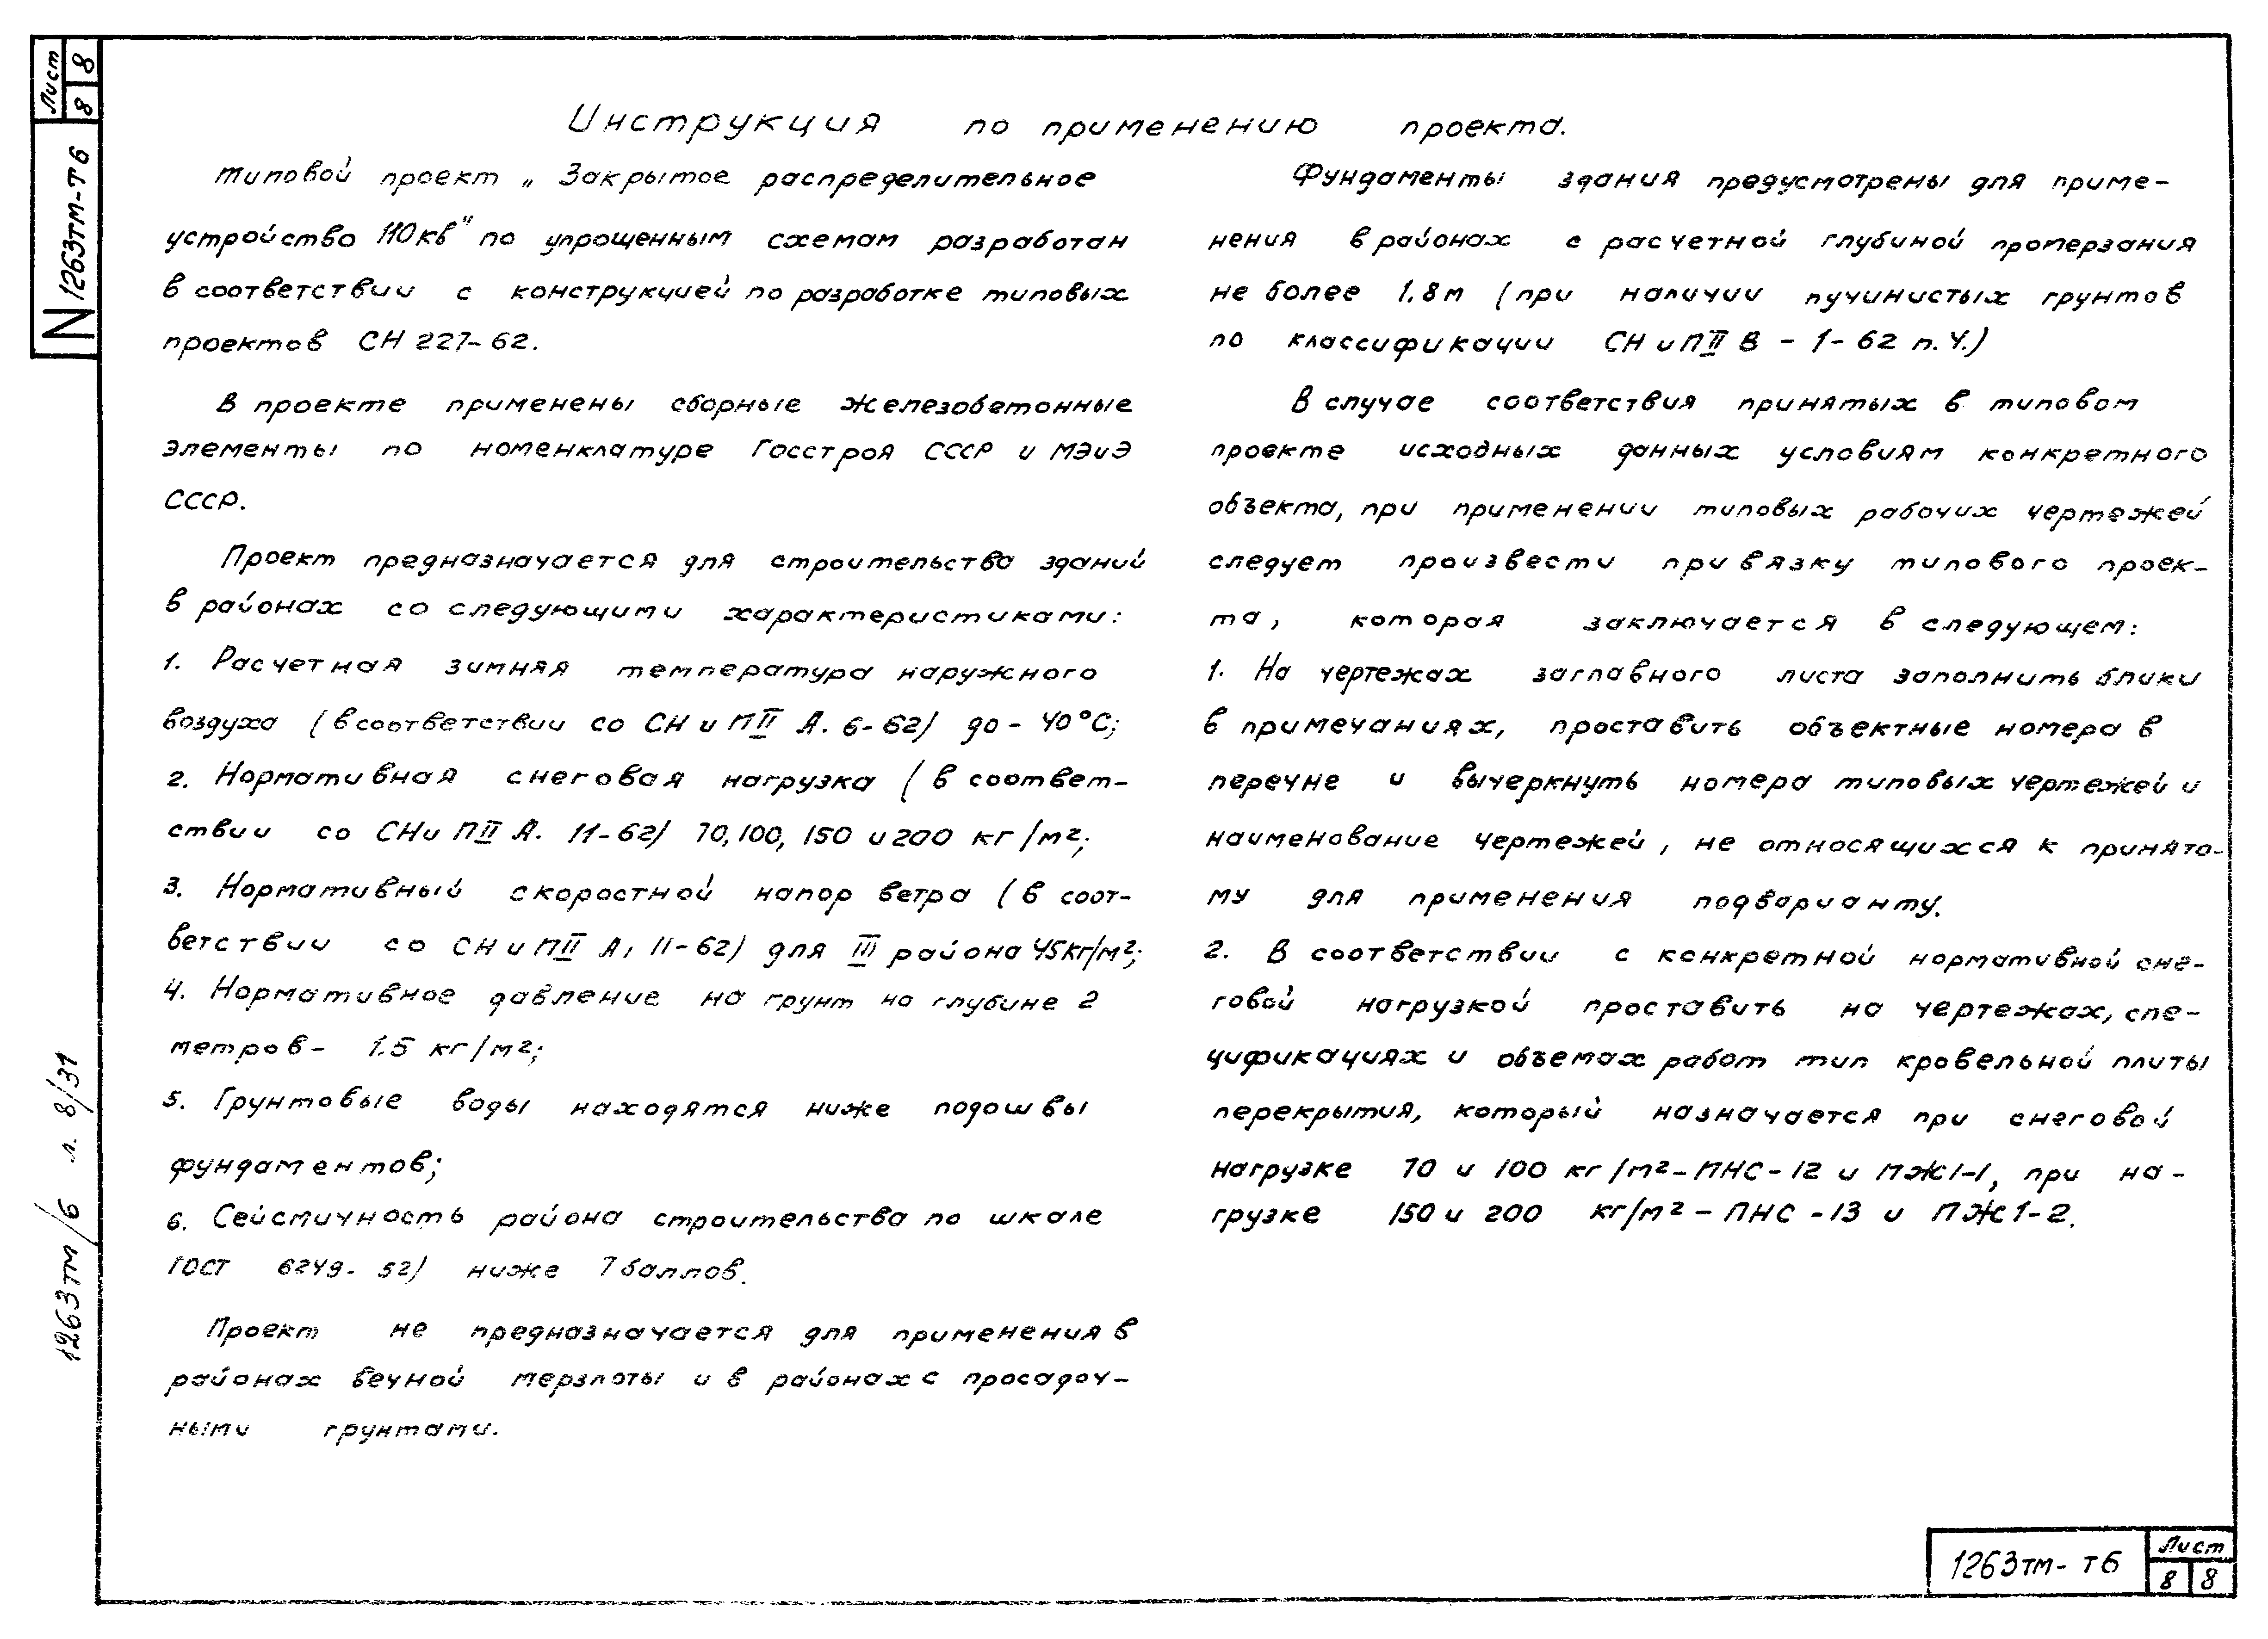 Лист
8 8
N 1263тм-т6
Инструкция по применению проекта.
Типовой проект „Закрытое распределительное
устройство 110кв" по упрощенным схемам разработан
в соответствии с конструкцией по разработке типовых
проектов СН 227-62.
В проекте применены сборные железобетонные
элементы по номенклатуре Госстроя СССР и МЭиЭ
СССР.
Проект предназначается для строительства зданий
в районах со следующими характеристиками:
1. Расчетная зимняя температура наружного
воздуха (в соответствии со СН и П II А. 6-62) до - 40°С;
2. Нормативная снеговая нагрузка (в соответ-
ствии со СНиП II А. 11-62) 70,100, 150 и 200 кг/м²;
3. Нормативный скоростной напор ветра (в соот-
ветствии со СН и П II А, 11-62) для III района 45кг/м²;
4. Нормативное давление на грунт на глубине 2
метров- 1.5 кг/м²;
5. Грунтовые воды находятся ниже подошвы
фундаментов;
6. Сейсмичность района строительства по шкале
ГОСТ 6249- 52) ниже 7 баллов.
Проект не предназначается для применения в
районах вечной мерзлоты и в районах с просадоч-
ными грунтами.
Фундаменты здания предусмотрены для приме-
нения в районах с расчетной глубиной промерзания
не более 1.8м (при наличии пучинистых грунтов
по классификации СН и П II В - 1- 62 п. 4.)
В случае соответствия принятых в типовом
проекте исходных данных условиям конкретного
объекта, при применении типовых рабочих чертежей
следует произвести привязку типового проек-
та, которая заключается в следующем:
1. На чертежах заглавного листа заполнить блики
в примечаниях, проставить объектные номера в
перечне и вычеркнуть номера типовых чертежей и
наименование чертежей, не относящихся к принято-
му для применения подварианту.
2. В соответствии с конкретной нормативной сне-
говой нагрузкой проставить на чертежах, спе-
цификациях и объемах работ тип кровельной плиты
перекрытия, который назначается при снеговой
нагрузке 70 и 100 кг/м²-ПНС-12 и ПЖ1-1, при на-
грузке 150 и 200 кг/м² - ПНС -13 и ПЖ1-2.
1263тм/6 л. 8/31
1263тм- т6
Лист
8 8